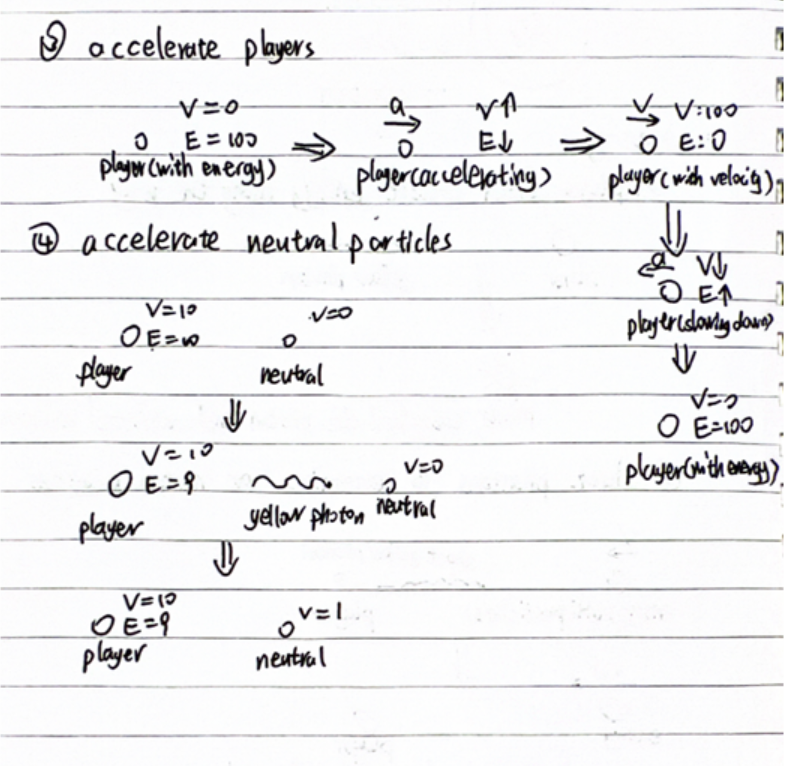 ③ accelerate players
V=0
E=100
player(with energy)
a
V↑
E↓
player(accelerating)
V V:100
E:0
player(with velocity)
a V↓
E↑
player(slowing down)
V=0
E=100
player(with energy)
④ accelerate neutral particles
V=10
E=10
player
V=0
neutral
V=10
E=9
player
yellow photon
V=0
neutral
V=10
E=9
player
V=1
neutral